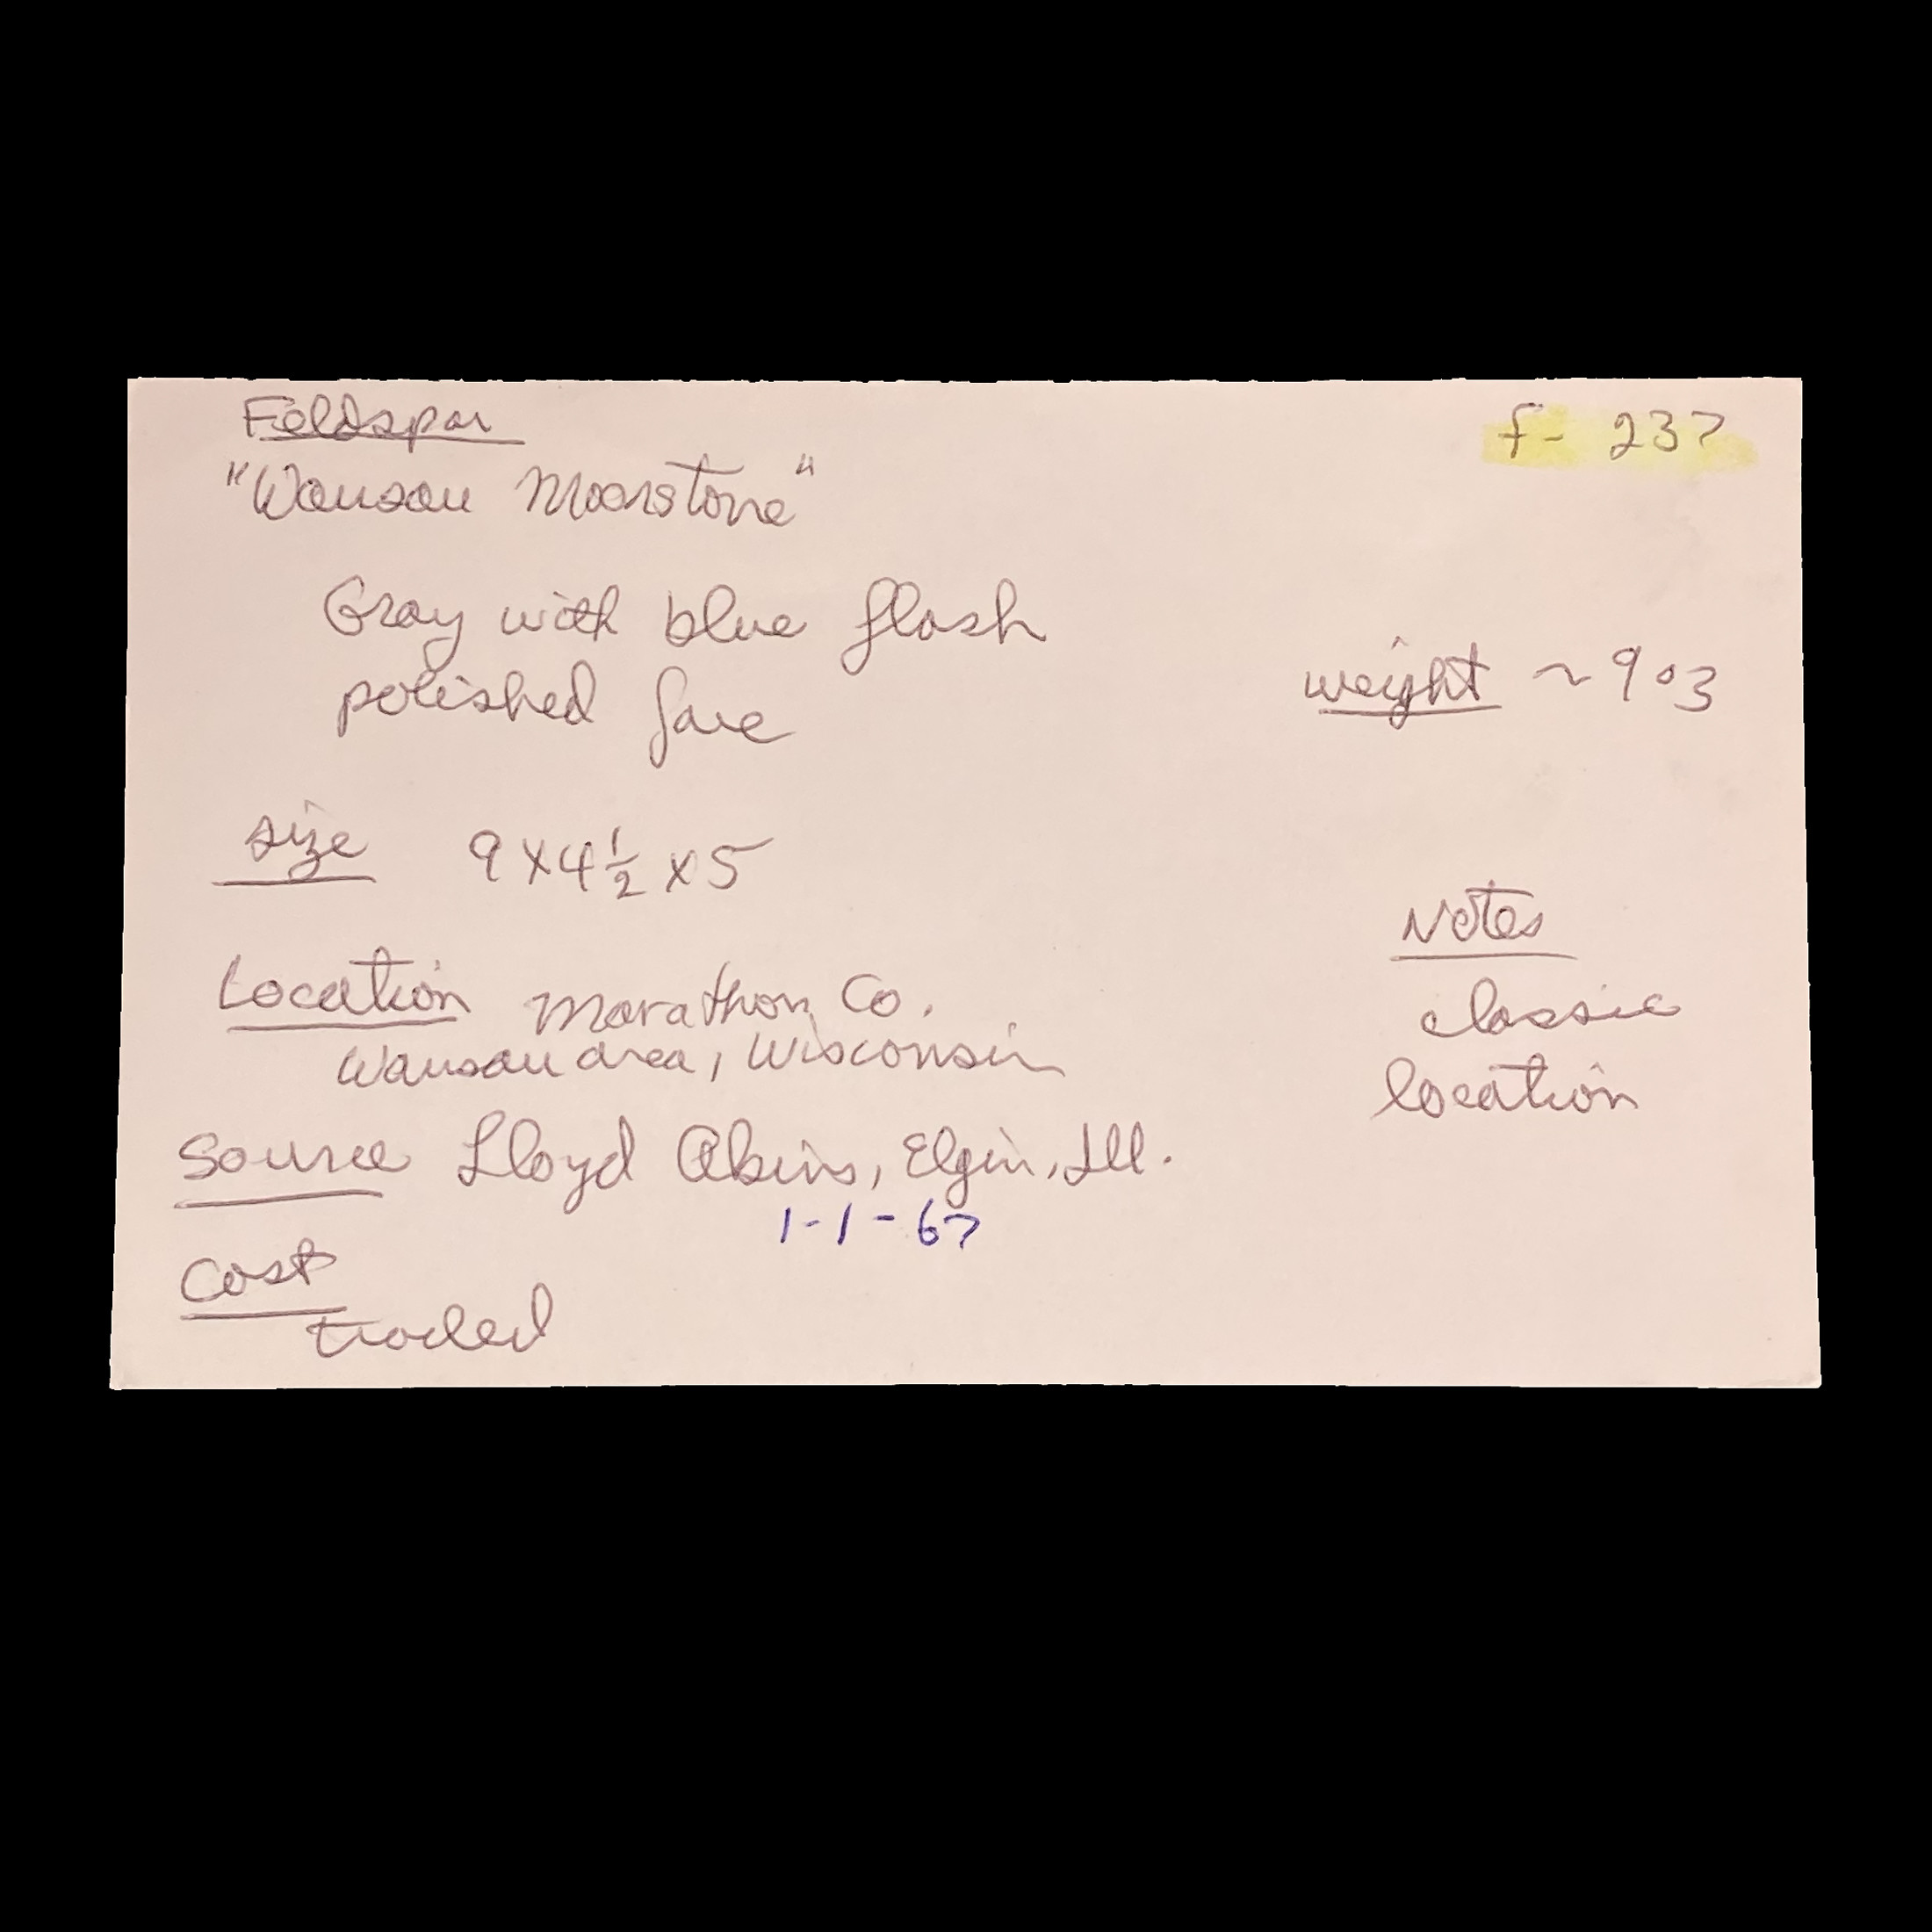 Feldspar
f- 237
"Wausau Moonstone"
Gray with blue flash
polished face
weight ~ 9.3
size 9 x 4 1/2 x 5
Notes
classic
location
Location Marathon Co.
Wausau area, Wisconsin
Source Lloyd Elgin, Ill.
1-1-67
Cost
traded